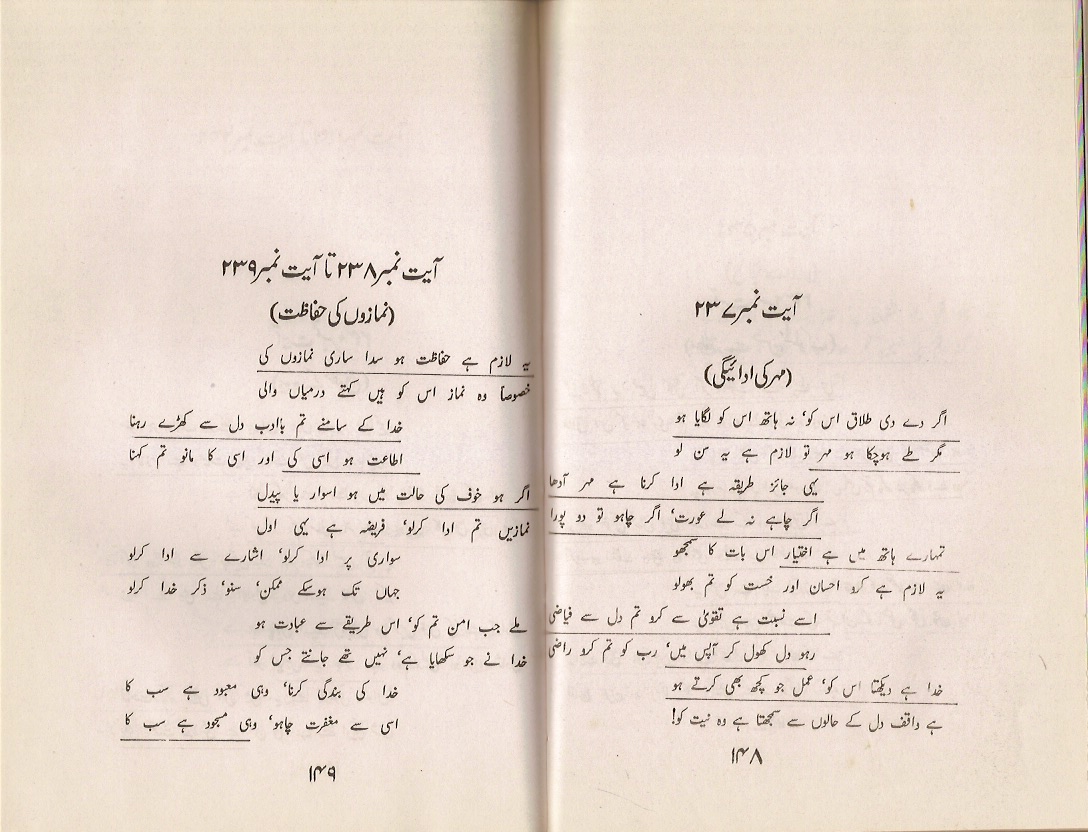 آیت نمبر ۲۳۷
(مہر کی ادائیگی)
اگر دے دی طلاق اس کو، نہ ہاتھ اس کو لگایا ہو
مگر طے ہوچکا ہو مہر تو لازم ہے یہ سن لو
یہی جائز طریقہ ہے ادا کرنا ہے مہر آدھا
اگر چاہے نہ لے عورت، اگر چاہو تو دو پورا
تمہارے ہاتھ میں ہے اختیار اس بات کا سمجھو
یہ لازم ہے کرو احسان اور خست کو تم بھولو
اسے نسبت ہے تقویٰ سے کرو تم دل سے فیاضی
رہو دل کھول کر آپس میں، رب کو تم کرو راضی
خدا ہے دیکھتا اس کو، عمل جو کچھ بھی کرتے ہو
ہے واقف دل کے حالوں سے سمجھتا ہے وہ نیت کو!
۱۴۸
آیت نمبر ۲۳۸ تا آیت نمبر ۲۳۹
(نمازوں کی حفاظت)
یہ لازم ہے حفاظت ہو سدا ساری نمازوں کی
خصوصاً وہ نماز اس کو ہیں کہتے درمیاں والی
خدا کے سامنے تم باادب دل سے کھڑے رہنا
اطاعت ہو اسی کی اور اسی کا مانو تم کہنا
اگر ہو خوف کی حالت میں ہو اسوار یا پیدل
نمازیں تم ادا کرلو، فریضہ ہے یہی اول
سواری پر ادا کرلو، اشارے سے ادا کرلو
جہاں تک ہوسکے ممکن، سنو، ذکر خدا کرلو
ملے جب امن تم کو، اس طریقے سے عبادت ہو
خدا نے جو سکھایا ہے، نہیں تھے جانتے جس کو
خدا کی بندگی کرنا، وہی معبود ہے سب کا
اسی سے مغفرت چاہو، وہی مسجود ہے سب کا
۱۴۹